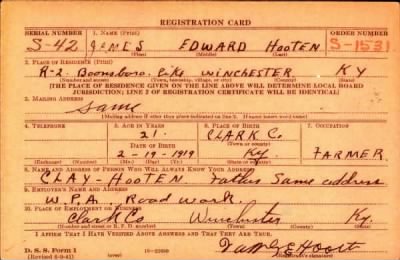 REGISTRATION CARD
SERIAL NUMBER 1. NAME (Print) ORDER NUMBER
S-42 JAMES EDWARD HOOTEN S-1531
(First) (Middle) (Last)
2. PLACE OF RESIDENCE (Print)
R-2 Boonsboro. Pike WINCHESTER KY
(Number and street) (Town, township, village, or city) (County) (State)
[THE PLACE OF RESIDENCE GIVEN ON THE LINE ABOVE WILL DETERMINE LOCAL BOARD
JURISDICTION; LINE 2 OF REGISTRATION CERTIFICATE WILL BE IDENTICAL]
3. MAILING ADDRESS
Same
[Mailing address if other than place indicated on line 2. If same insert word same]
4. TELEPHONE 5. AGE IN YEARS 6. PLACE OF BIRTH 7. OCCUPATION
21 CLARK Co
DATE OF BIRTH (Town or county)
2-19-1919 Ky FARMER
(Exchange) (Number) (Mo.) (Day) (Yr.) (State or country)
8. NAME AND ADDRESS OF PERSON WHO WILL ALWAYS KNOW YOUR ADDRESS
CLAY HOOTEN Father Same address
9. EMPLOYER'S NAME AND ADDRESS
W.P.A. Road work.
10. PLACE OF EMPLOYMENT OR BUSINESS
Clark Co Winchester Ky.
(Number and street or R. F. D. number) (Town) (County) (State)
I AFFIRM THAT I HAVE VERIFIED ABOVE ANSWERS AND THAT THEY ARE TRUE.
D. S. S. Form 1
(Revised 6-9-41) (over) (Registrant's signature)